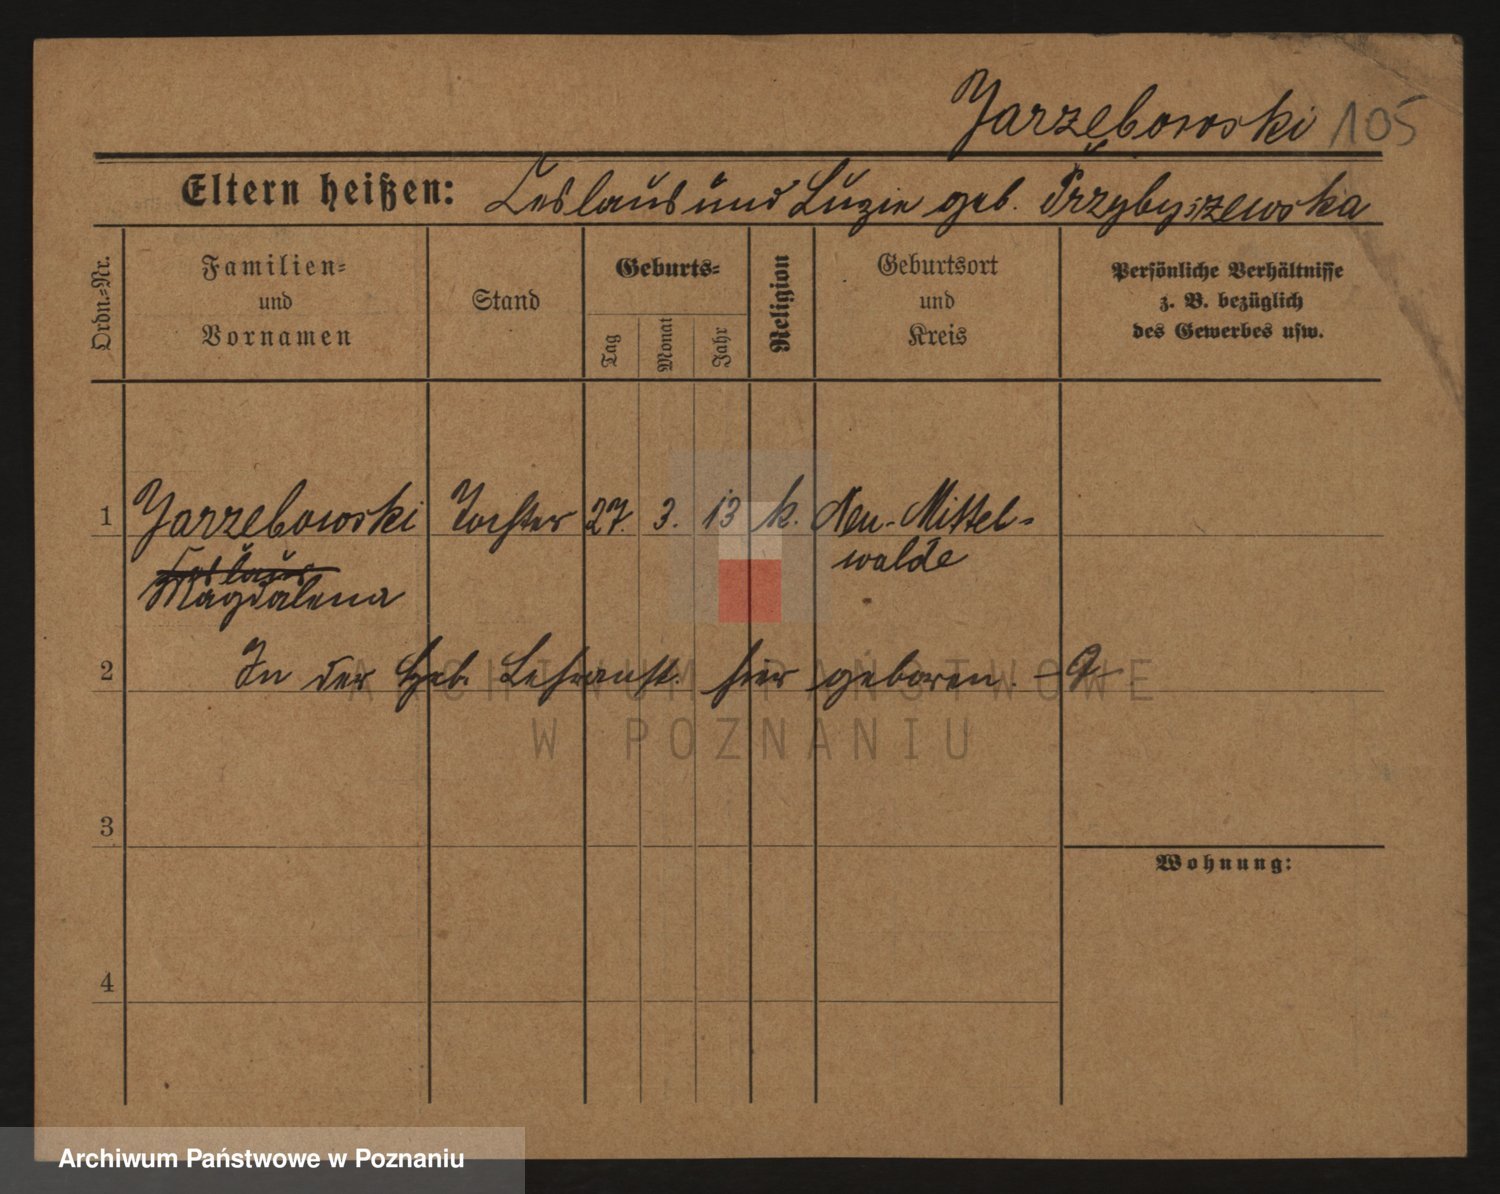 Jarzębowski 105
Eltern heißen: Ceslaus und Luzie geb. Przybyszewska
Ordn.-Nr.
Familien-
und
Vornamen
Stand
Geburts-
Tag
Monat
Jahr
Religion
Geburtsort
und
Kreis
Persönliche Verhältnisse
z. B. bezüglich
des Gewerbes usw.
1 Jarzebowski Tochter 27. 3. 13 k. Neu-Mittel-
walde
Ceslaus
Magdalena
2 In der Heb. Lehranst. hier geboren.
ARCHIWUM PAŃSTWOWE
W POZNANIU
3
Wohnung:
4
Archiwum Państwowe w Poznaniu